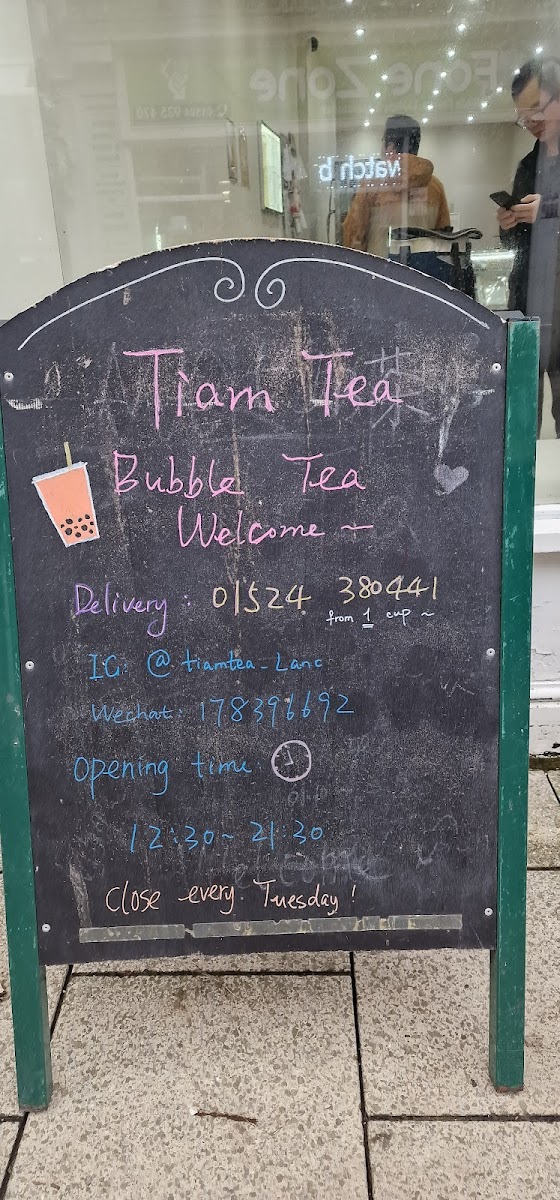 Fone Zone
01524 925 470
watch b
Tiam Tea
Bubble Tea
Welcome ~
Delivery: 01524 380441
from 1 cup ~
IG: @tiamtea_Lanc
Wechat: 178396692
Opening time:
12:30~ 21:30
Welcome
Close every Tuesday!